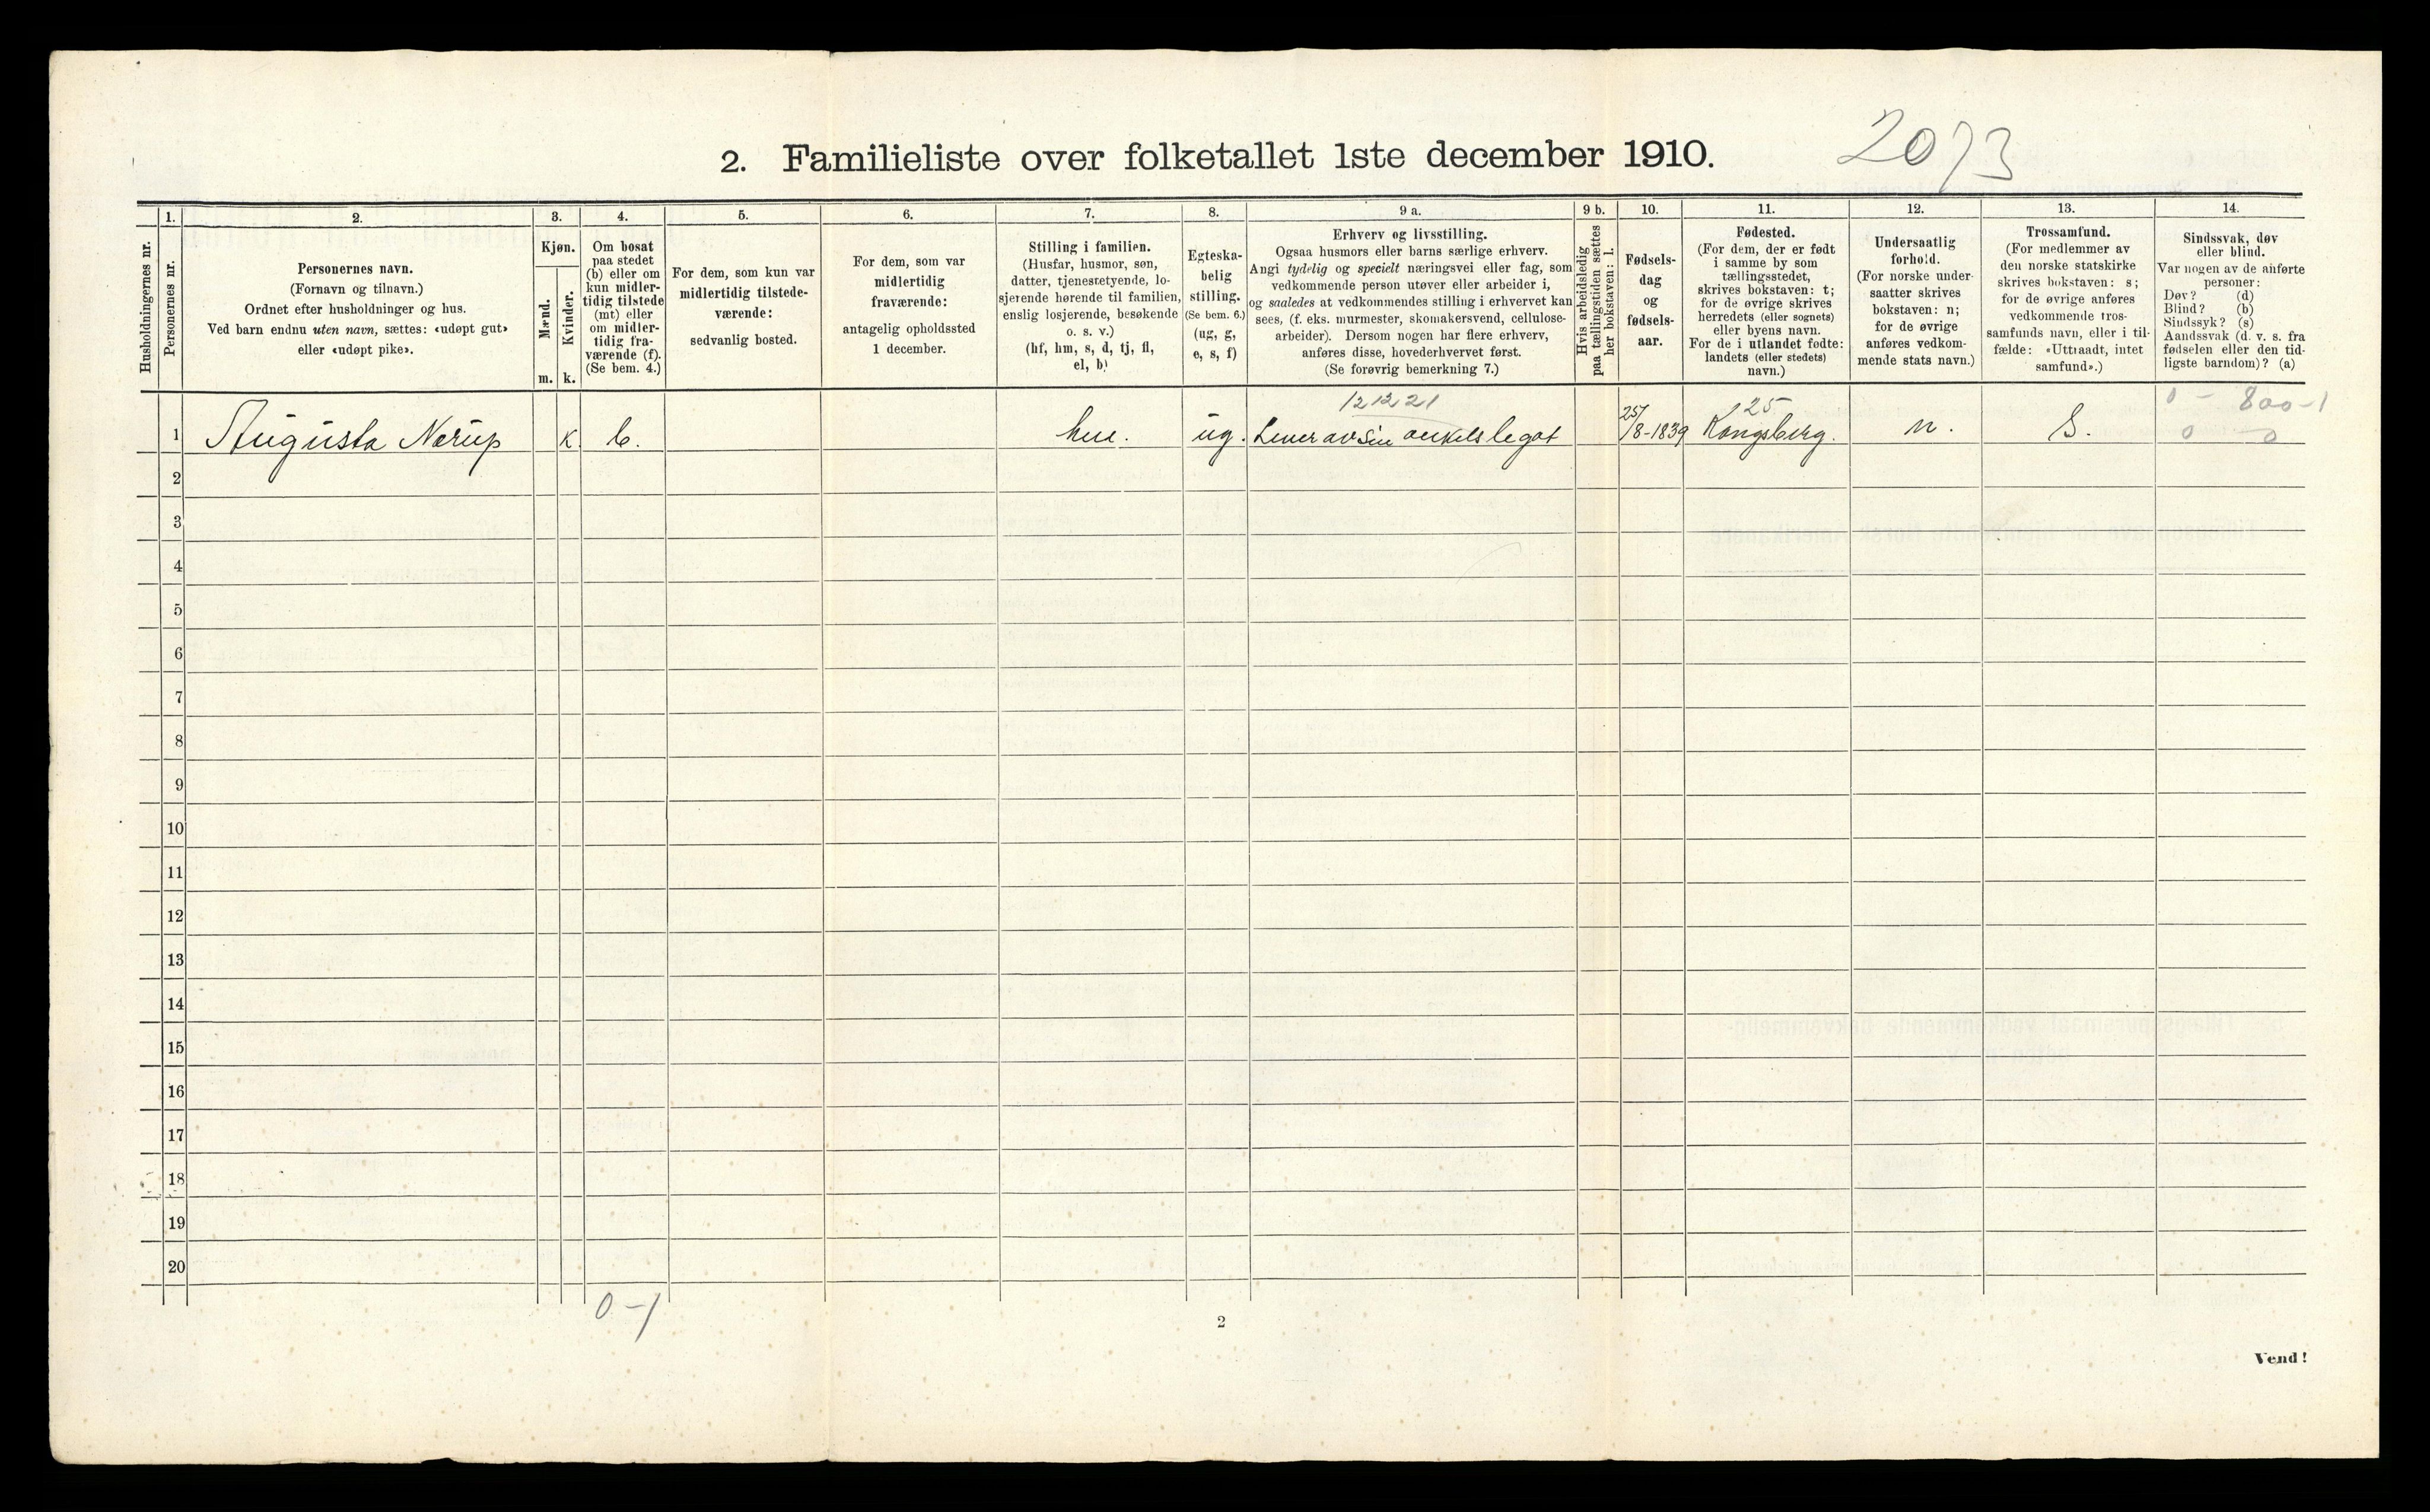 2. Familieliste over folketallet 1ste december 1910.
2073
1. 2. 3. 4. 5. 6. 7. 8. 9 a. 9 b. 10. 11. 12. 13. 14.
Husholdningernes nr.
Personernes nr.
Personernes navn.
(Fornavn og tilnavn.)
Ordnet efter husholdninger og hus.
Ved barn endnu uten navn, sættes: «udøpt gut»
eller «udøpt pike».
Kjøn.
Mænd.
Kvinder.
m. k.
Om bosat
paa stedet
(b) eller om
kun midler-
tidig tilstede
(mt) eller
om midler-
tidig fra-
værende (f).
(Se bem. 4.)
For dem, som kun var
midlertidig tilstede-
værende:
sedvanlig bosted.
For dem, som var
midlertidig
fraværende:
antagelig opholdssted
1 december.
Stilling i familien.
(Husfar, husmor, søn,
datter, tjenestetyende, lo-
sjerende hørende til familien,
enslig losjerende, besøkende
o. s. v.)
(hf, hm, s, d, tj, fl,
el, b)
Egteska-
belig
stilling.
(Se bem. 6.)
(ug, g,
e, s, f)
Erhverv og livsstilling.
Ogsaa husmors eller barns særlige erhverv.
Angi tydelig og specielt næringsvei eller fag, som
vedkommende person utøver eller arbeider i,
og saaledes at vedkommendes stilling i erhvervet kan
sees, (f. eks. murmester, skomakersvend, cellulose-
arbeider). Dersom nogen har flere erhverv,
anføres disse, hovederhvervet først.
(Se forøvrig bemerkning 7.)
Hvis arbeidsledig
paa tællingstiden sættes
her bokstaven: l.
Fødsels-
dag
og
fødsels-
aar.
Fødested.
(For dem, der er født
i samme by som
tællingsstedet,
skrives bokstaven: t;
for de øvrige skrives
herredets (eller sognets)
eller byens navn.
For de i utlandet fødte:
landets (eller stedets)
navn.)
Undersaatlig
forhold.
(For norske under-
saatter skrives
bokstaven: n;
for de øvrige
anføres vedkom-
mende stats navn.)
Trossamfund.
(For medlemmer av
den norske statskirke
skrives bokstaven: s;
for de øvrige anføres
vedkommende tros-
samfunds navn, eller i til-
fælde: «Uttraadt, intet
samfund».)
Sindssvak, døv
eller blind.
Var nogen av de anførte
personer:
Døv? (d)
Blind? (b)
Sindssyk? (s)
Aandssvak (d. v. s. fra
fødselen eller den tid-
ligste barndom)? (a)
12 12 21
125
0 - 800-1
1 Augusta Nærup k b. hm. ug. Lever av sin onkels legat 25/8-1839 Kongsberg. n. S. 0 0
2
3
4
5
6
7
8
9
10
11
12
13
14
15
16
17
18
19
20
0-1
2
Vend!